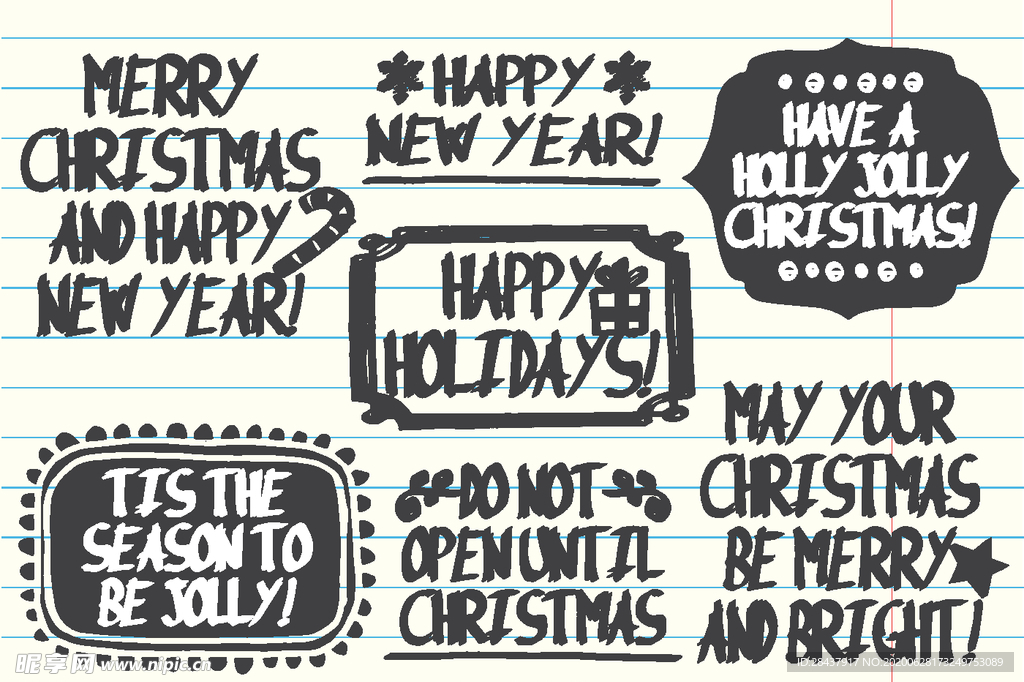 MERRY
CHRISTMAS
AND HAPPY
NEW YEAR!
HAPPY
NEW YEAR!
HAVE A
HOLLY JOLLY
CHRISTMAS!
HAPPY
HOLIDAYS!
TIS THE
SEASON TO
BE JOLLY!
DO NOT
OPEN UNTIL
CHRISTMAS
MAY YOUR
CHRISTMAS
BE MERRY
AND BRIGHT!
昵享网 www.nipic.cn
ID:28437917 NO:20200628173249753089